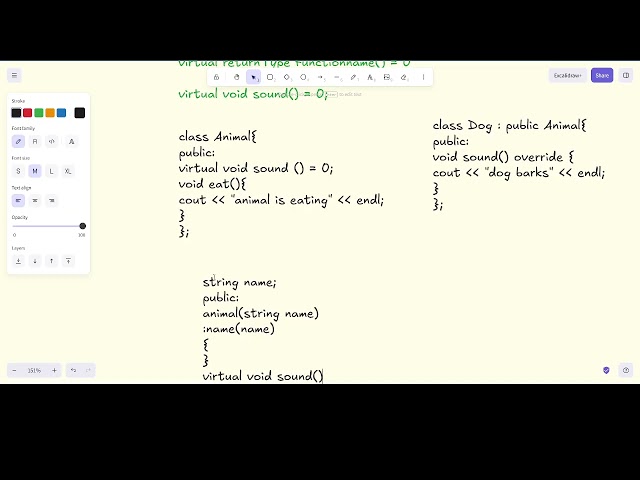 virtual returnType functionname() = 0
Excalidraw+
Share
virtual void sound() = 0;
Stroke
Font family
Font size
S M L XL
Text align
Opacity
0 100
Layers
class Animal{
public:
virtual void sound () = 0;
void eat(){
cout << "animal is eating" << endl;
}
};
class Dog : public Animal{
public:
void sound() override {
cout << "dog barks" << endl;
}
};
string name;
public:
animal(string name)
:name(name)
{
}
virtual void sound()
- 151% +